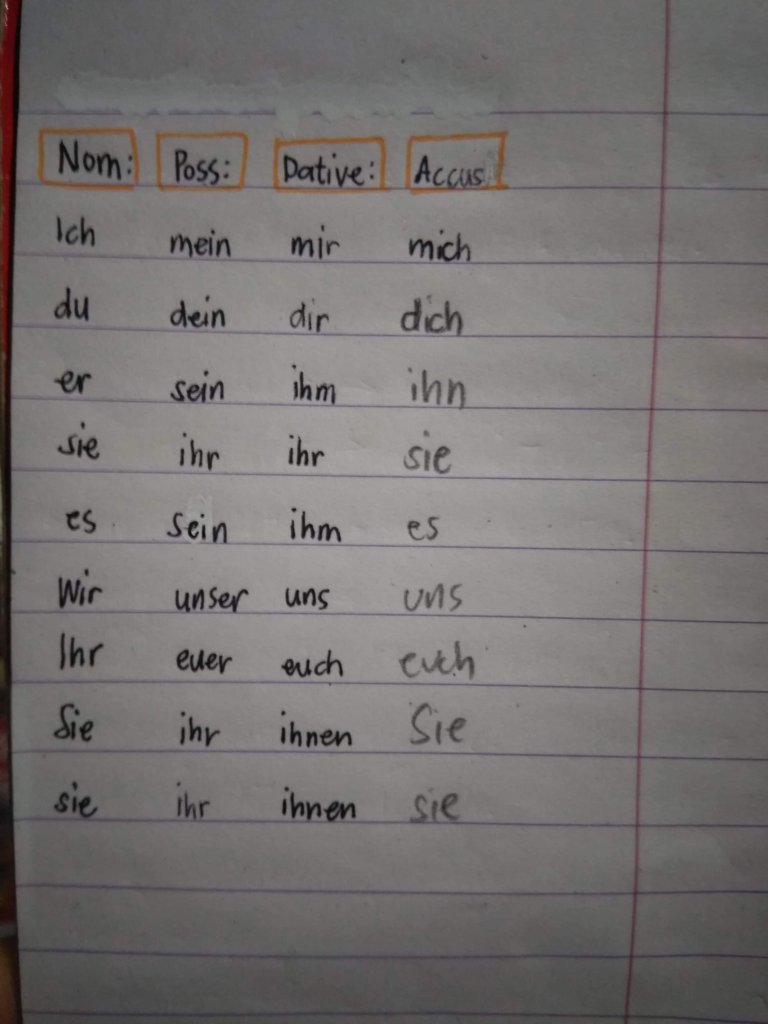 Nom: Poss: Dative: Accus
Ich mein mir mich
du dein dir dich
er sein ihm ihn
sie ihr ihr sie
es sein ihm es
Wir unser uns uns
Ihr euer euch euch
Sie ihr ihnen Sie
sie ihr ihnen sie